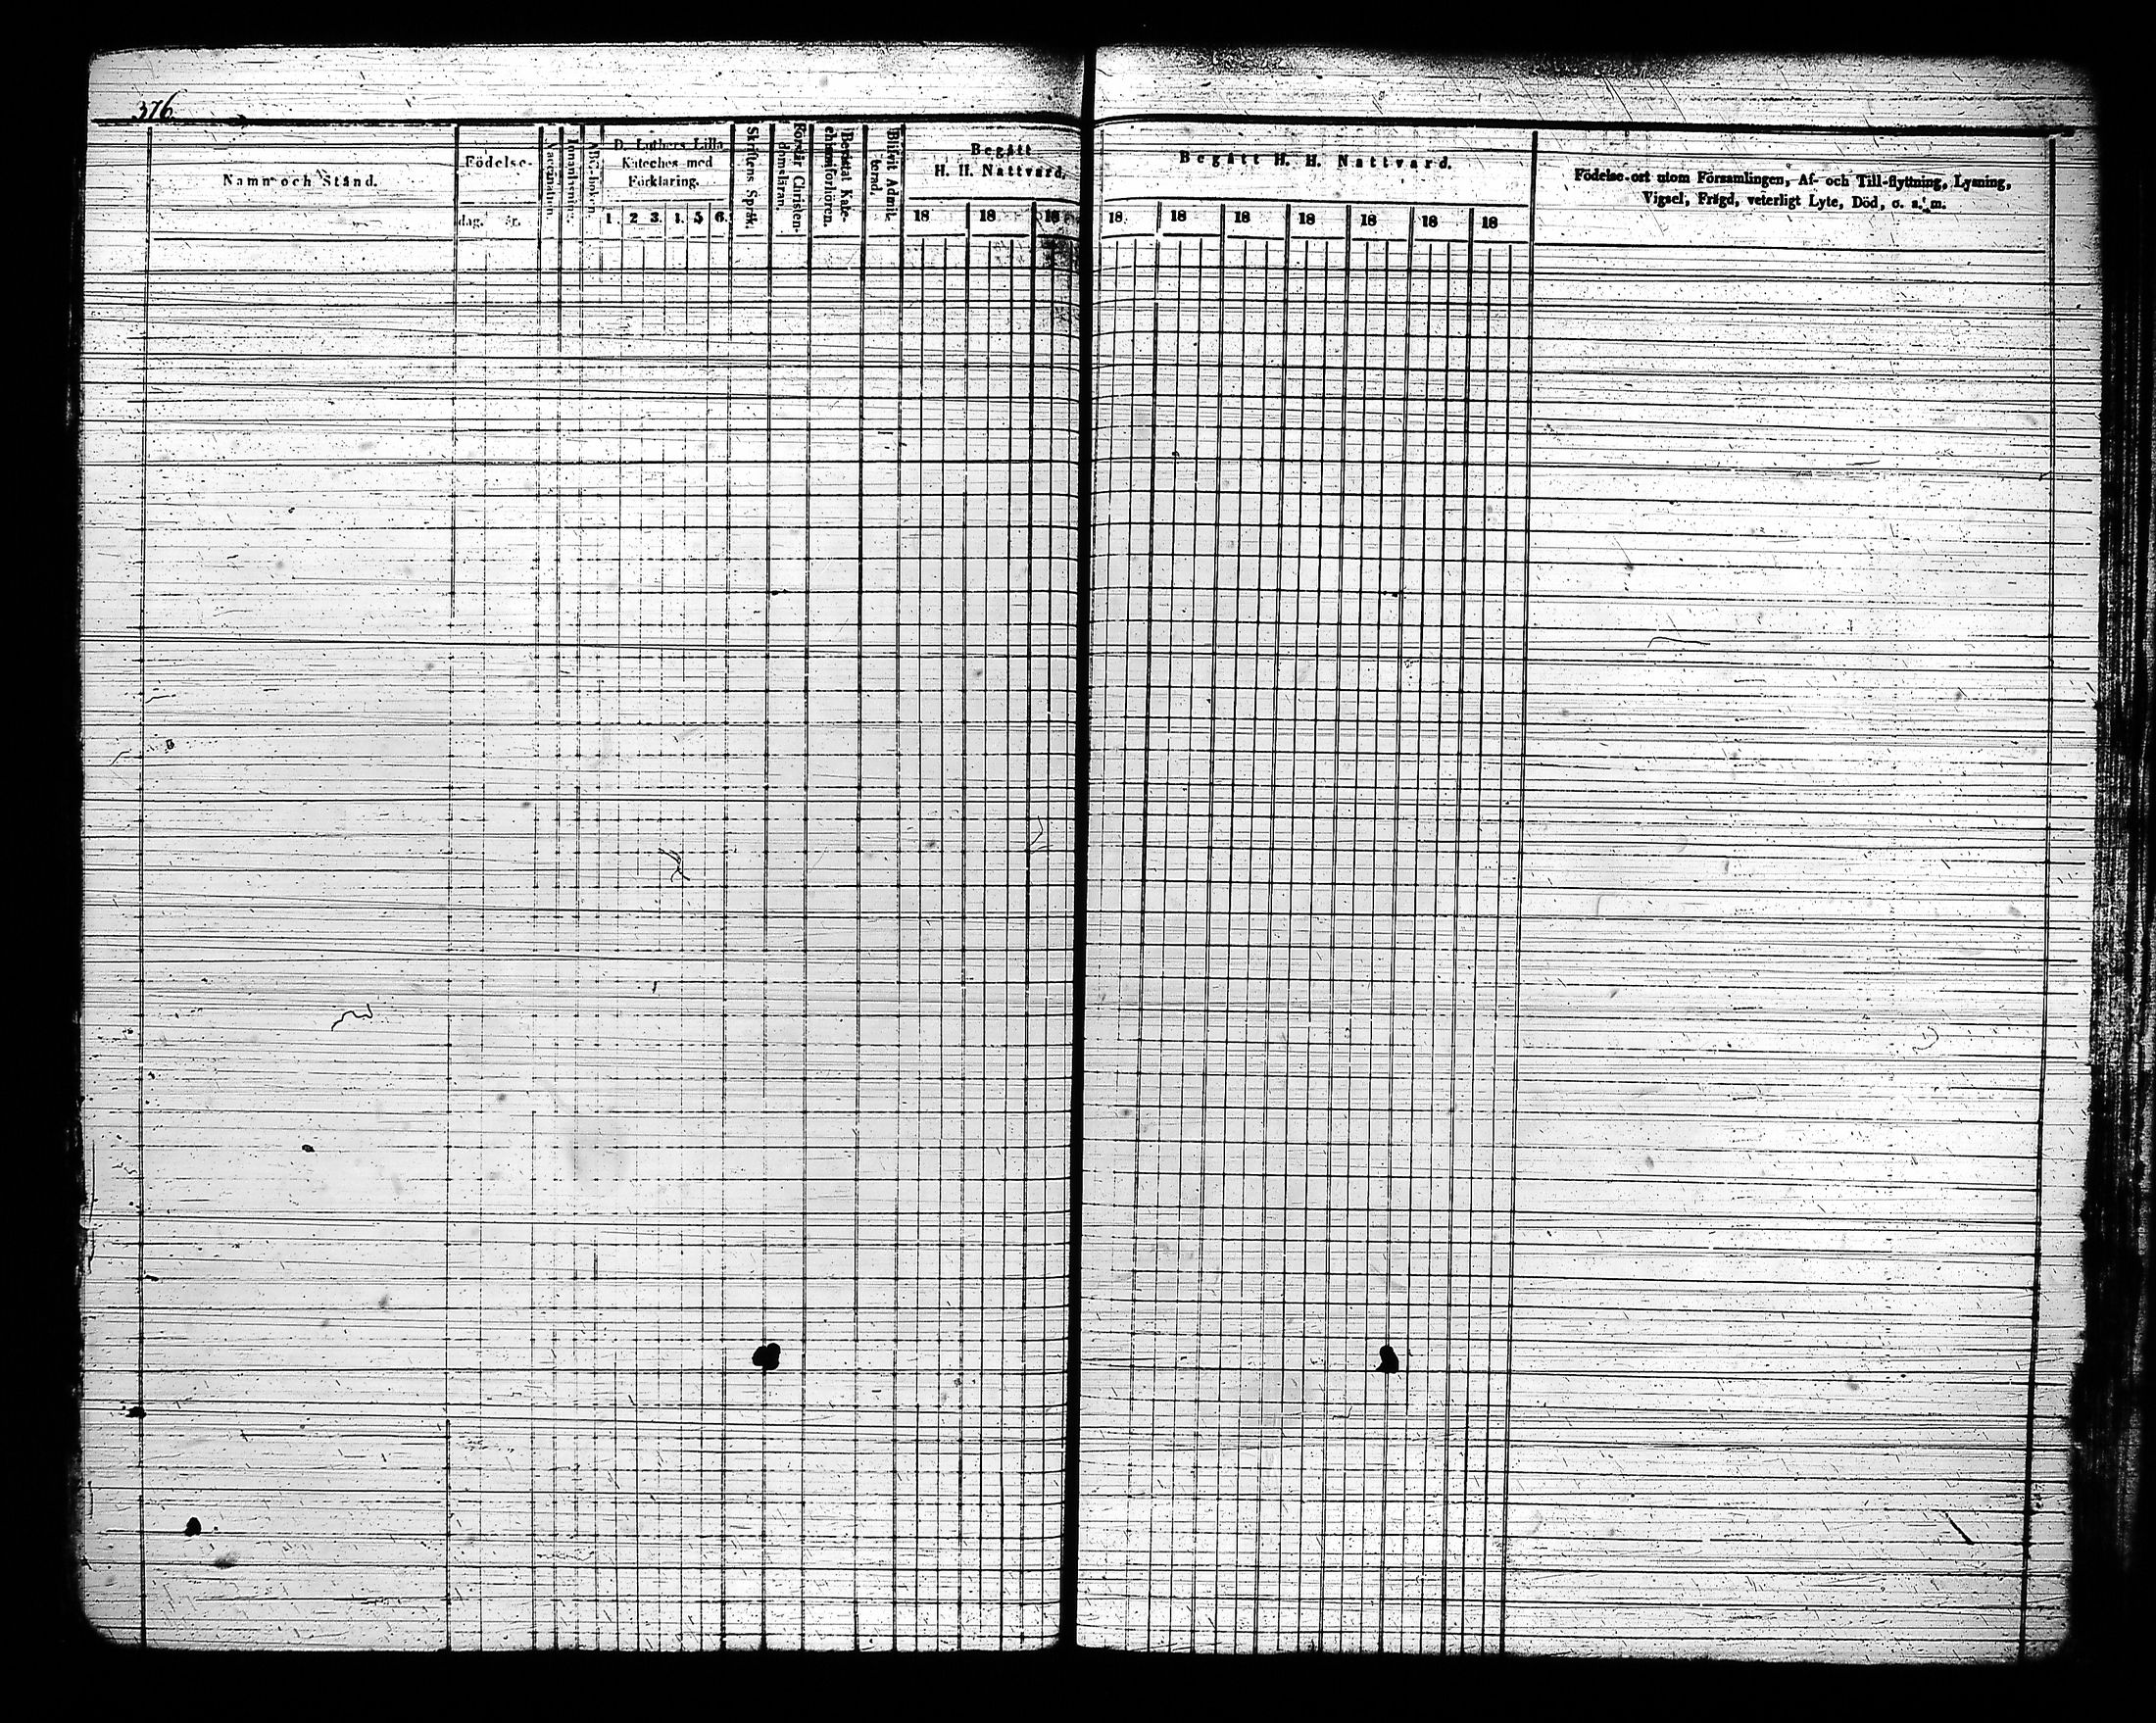 376
Namn och Stånd.
Födelse-
dag. år.
Vaccination.
Innanläsning.
ABC-boken.
D. Luthers Lilla
Kateches med
Förklaring.
1. 2 3. 4. 5 6.
Skriftens Språk.
Förstår Christen-
domsläran.
Bevistat Kate-
chismiförhören.
Blifvit Admit-
terad.
Begått
H. H. Nattvard.
18 18 18
Begått H. H. Nattvard.
18 18 18 18 18 18 18
Födelse-ort utom Församlingen, Af- och Till-flyttning, Lysning,
Vigsel, Frägd, veterligt Lyte, Död, o. s. m.